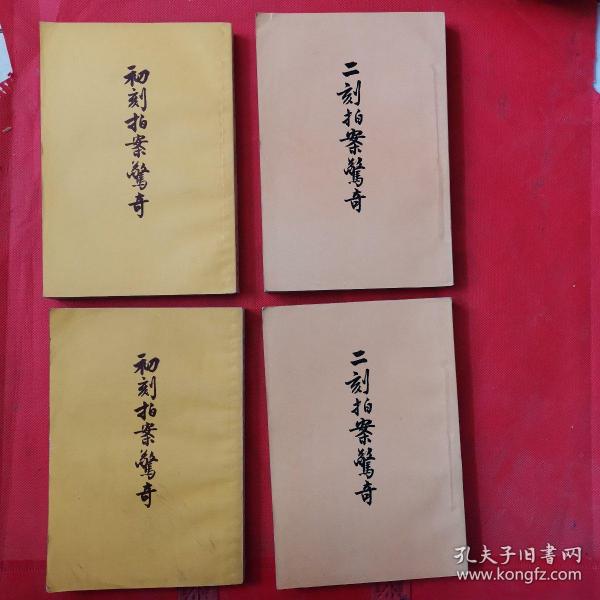 初刻拍案驚奇
二刻拍案驚奇
初刻拍案驚奇
二刻拍案驚奇
孔夫子旧书网
www.kongfz.com